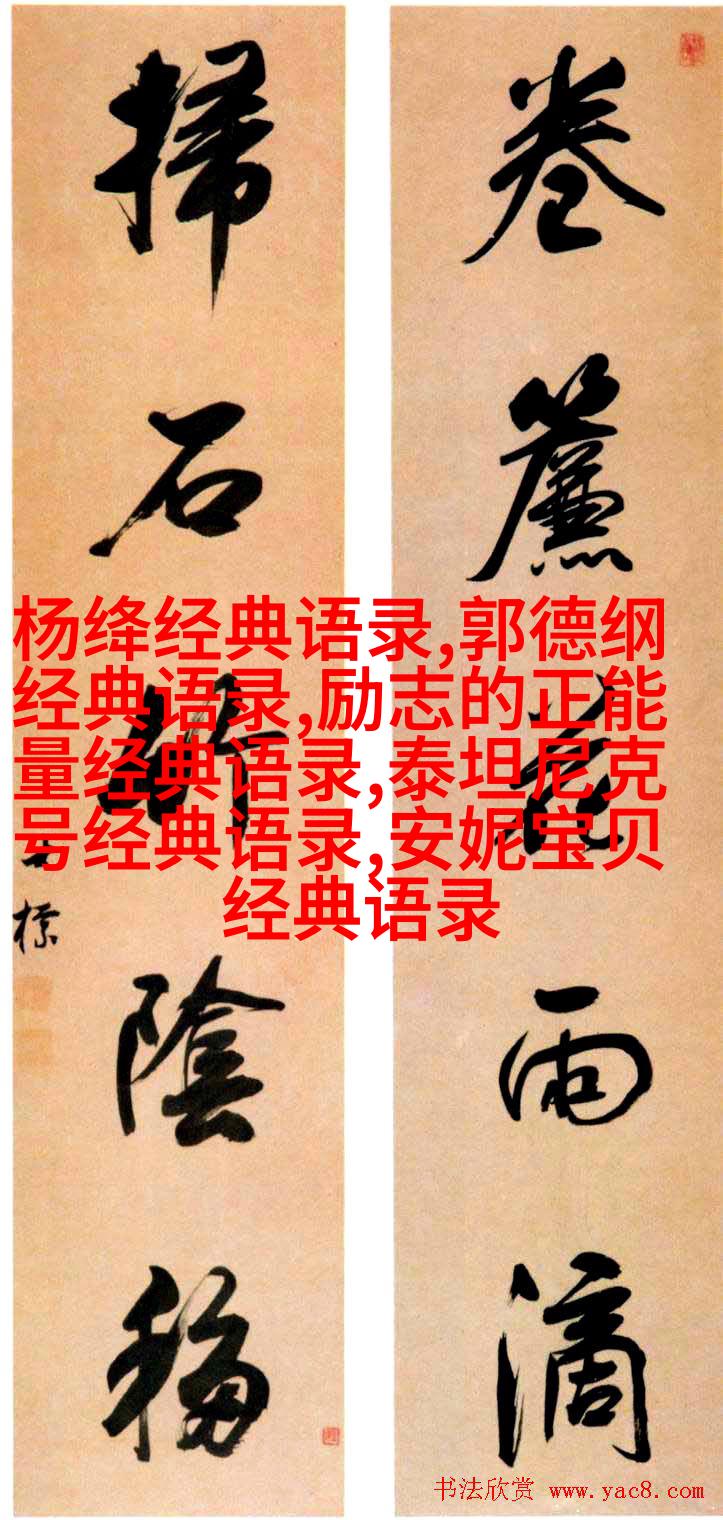 卷簾花雨滴
掃石竹陰移
士標
杨绛经典语录,郭德纲
经典语录,励志的正能
量经典语录,泰坦尼克
号经典语录,安妮宝贝
经典语录
书法欣赏 www.yac8.com